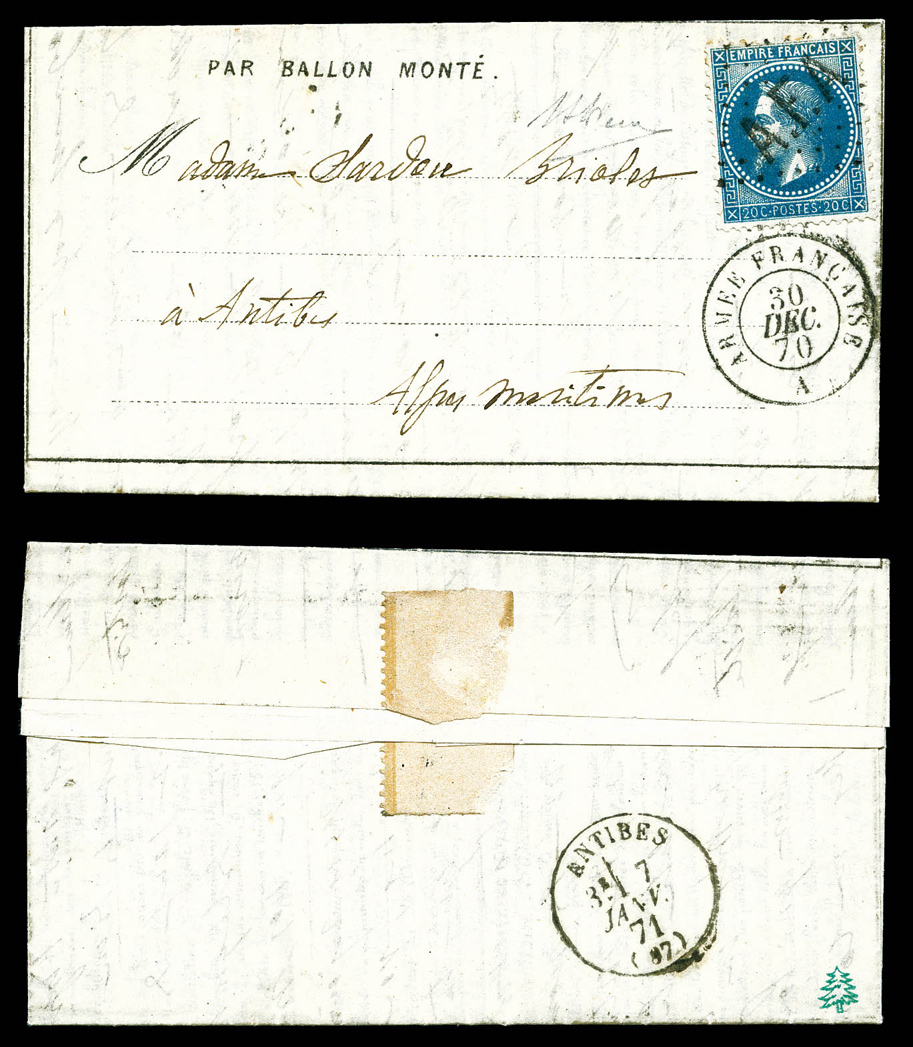 PAR BALLON MONTÉ.
EMPIRE FRANÇAIS
20C·POSTES·20C
Madame Sardou Brioles
à Antibes
Alpes maritimes
ARMÉE FRANÇAISE
30
DEC.
70
A
ANTIBES
3E 7
JANV.
71
(87)